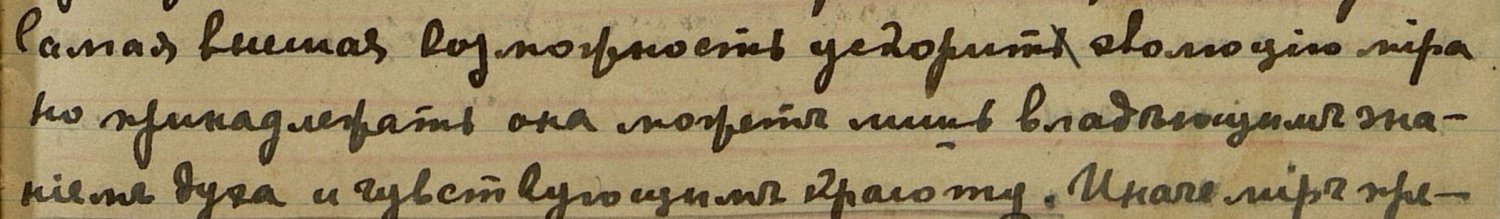 Самая высшая возможность ускорить эволюцію міра
но принадлежать она можетъ лишь владѣющимъ зна-
ніемъ духа и чувствующимъ красоту. Иначе міръ пре-